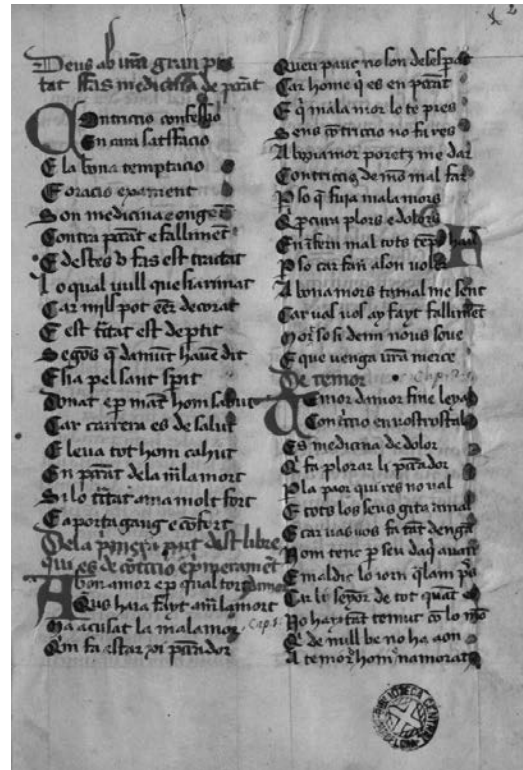 Deus ab vr̃a gran pie
tat fas medicina de pecat
Contriccio confessio
En cara satisfaccio
E la bona temptacio
E oracio exament
Son medicina e onguẽt
Contra pecat e falliment
E destes v fas est tractat
Lo qual vull que sia rimat
Car mills pot eser decorat
E est tr̃tat est departit
Segons q̃ damunt hauẽ dit
E sia pel sant sp̃it
Donat e p̃ mãt hom sabut
Car carrera es de salut
E leva tot hom cahut
En pecat de la mala mort
Si lo tr̃tat ama molt fort
E aporta gaug e cõfort
De la p̃mera part dest libre
qui es de cõtriccio e p̃merament
damor
A bon amor e p̃ qual tort
Qus hara fayt am la mort
Ha acusat la mala mor Cap. 1.
Qm fa estar xi pecador
Queu pauc no son desesperat
Car home q̃ es en pecat
E q̃ mala mor lo te pres
Sens cõtriccio no fa res
A bona mor poretz me dar
Contriccio de mõ mal far
P so q̃ fuja mala mors
Q̃ p̃cura plors e dolors
En ifern mal tots tẽps hau
P so car fan a son voler
A bona mors tamal me sent
Car vas vos ay fayt fallimẽt
Mor so si dem nous sove
E que venga vr̃a merce
De temor Cap. 2.
Temor damor fine leyal
Con triccio en vostrostal
Es medicina de dolor
Q̃ fa plorar li pecador
P la paor qui res no val
E tots los seus gita a mal
E car vas vos fa tãt dengã
Nom tenc p seu daq̃ avant
E maldic lo iorn q̃lam p̃s
Car li seyor de tot quãt es
No hay tãt temut cõ lo mõ
Q̃ de null be no ha aon
A temor hom namorat
BIBLIOTECA CENTRAL